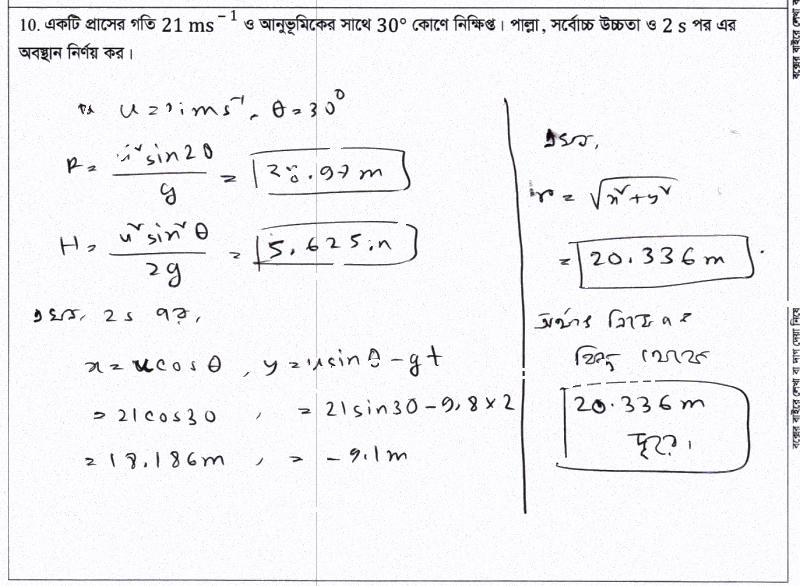 10. একটি প্রাসের গতি 21 ms⁻¹ ও আনুভূমিকের সাথে 30° কোণে নিক্ষিপ্ত। পাল্লা, সর্বোচ্চ উচ্চতা ও 2 s পর এর
অবস্থান নির্ণয় কর।
u = 21 ms⁻¹, θ = 30⁰
R = u² sin2θ / g = 38.97 m
H = u² sin²θ / 2g = 5.625 m
এখন, 2s পর,
x = u cosθ , y = u sinθ - gt
= 21 cos30 , = 21 sin30 - 9.8 × 2
= 18.186 m , = - 9.1 m
এখন,
r = √x² + y²
= 20.336 m
অর্থাৎ নিক্ষেপণ
বিন্দু থেকে
20.336 m
দূরে।
বক্সের বাইরে লেখা বা দাগ দেয়া নিষে